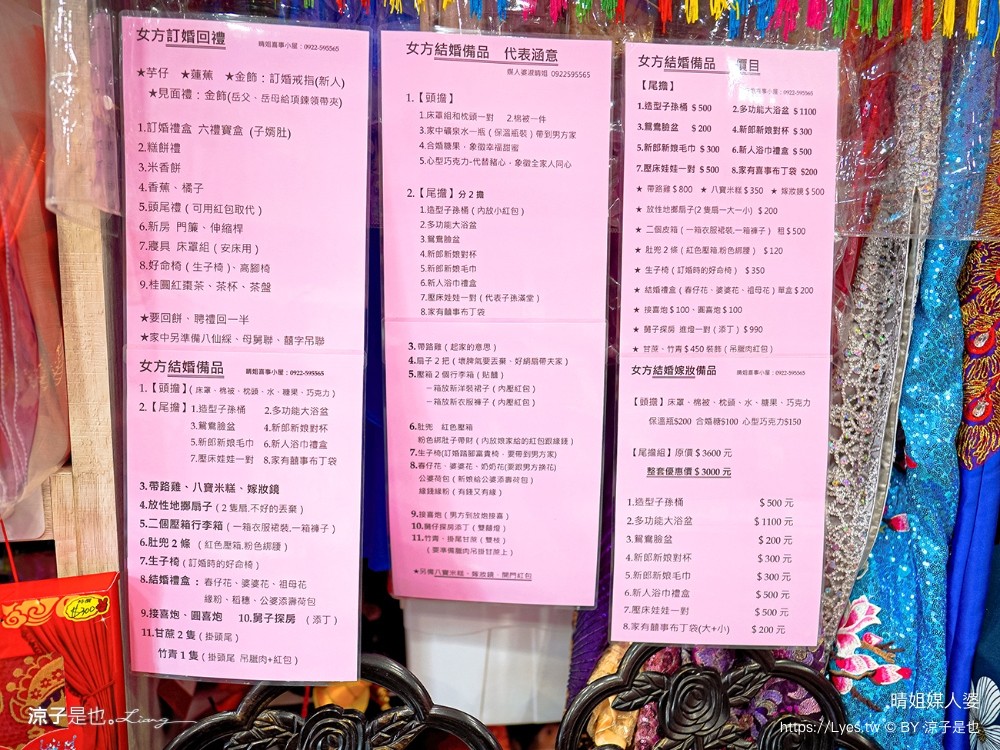 女方訂婚回禮
晴姐喜事小屋：0922-595565
★芋仔 ★蓮蕉 ★金飾：訂婚戒指(新人)
★見面禮：金飾(岳父、岳母給項鍊領帶夾)
1.訂婚禮盒 六禮寶盒 (子婿肚)
2.糕餅禮
3.米香餅
4.香蕉、橘子
5.頭尾禮(可用紅包取代)
6.新房 門簾、伸縮桿
7.寢具 床罩組(安床用)
8.好命椅(生子椅)、高腳椅
9.桂圓紅棗茶、茶杯、茶盤
★要回餅、聘禮回一半
★家中另準備八仙綵、母舅聯、囍字吊聯
女方結婚備品
晴姐喜事小屋：0922-595565
1.【頭擔】(床罩、棉被、枕頭、水、糖果、巧克力)
2.【尾擔】1.造型子孫桶 2.多功能大浴盆
3.鴛鴦臉盆 4.新郎新娘對杯
5.新郎新娘毛巾 6.新人浴巾禮盒
7.壓床娃娃一對 8.家有囍事布丁袋
3.帶路雞、八寶米糕、嫁妝鏡
4.放性地擲扇子(2隻扇,不好的丟棄)
5.二個壓箱行李箱(一箱衣服裙裝,一箱褲子)
6.肚兜2條(紅色壓箱,粉色綁腰)
7.生子椅(訂婚時的好命椅)
8.結婚禮盒：春仔花、婆婆花、祖母花
緣粉、稻穗、公婆添壽荷包
9.接喜炮、圓喜炮 10.舅子探房 (添丁)
11.甘蔗2隻(掛頭尾)
竹青1隻(掛頭尾 吊臘肉+紅包)
女方結婚備品 代表涵意
媒人婆淑晴姐 0922595565
1.【頭擔】
1.床罩組和枕頭一對 2.棉被一件
3.家中礦泉水一瓶(保溫瓶裝)帶到男方家
4.合婚糖果、象徵幸福甜蜜
5.心型巧克力-代替豬心，象徵全家人同心
2.【尾擔】分2擔
1.造型子孫桶(內放小紅包)
2.多功能大浴盆
3.鴛鴦臉盆
4.新郎新娘對杯
5.新郎新娘毛巾
6.新人浴巾禮盒
7.壓床娃娃一對(代表子孫滿堂)
8.家有囍事布丁袋
3.帶路雞(起家的意思)
4.扇子2把(壞脾氣要丟棄、好綁扇帶夫家)
5.壓箱2個行李箱(貼囍)
－箱放新洋裝裙子(內壓紅包)
－箱放新衣服褲子(內壓紅包)
6.肚兜 紅色壓箱
粉色綁肚子帶財(內放娘家給的紅包跟緣錢)
7.生子椅(訂婚踏腳富貴椅、要帶到男方家)
8.春仔花、婆婆花、奶奶花(要跟男方換花)
公婆荷包(新娘給公婆添壽荷包)
緣錢緣粉(有錢又有緣)
9.接喜炮(男方到放炮接喜)
10.舅仔探房添丁(雙囍燈)
11.竹青、掛尾甘蔗(雙枝)
(要準備臘肉吊掛甘蔗上)
★另備八寶米糕、嫁妝鏡、開門紅包
女方結婚備品 價目
【尾擔】
1.造型子孫桶 $500 2.多功能大浴盆 $1100
3.鴛鴦臉盆 $200 4.新郎新娘對杯 $300
5.新郎新娘毛巾 $300 6.新人浴巾禮盒 $500
7.壓床娃娃一對 $500 8.家有喜事布丁袋 $200
★ 帶路雞$800 ★ 八寶米糕$350 ★ 嫁妝鏡$500
★ 放性地擲扇子(2隻扇一大一小) $200
★ 二個皮箱(一箱衣服裙裝,一箱褲子) 租$500
★ 肚兜2條(紅色壓箱,粉色綁腰) $120
★ 生子椅(訂婚時的好命椅) $350
★ 結婚禮盒(春仔花、婆婆花、祖母花)單盒$200
★ 接喜炮$100、圓喜炮$100
★ 舅子探房 進燈一對(添丁)$990
★ 甘蔗、竹青$450裝飾(吊臘肉紅包)
女方結婚嫁妝備品
晴姐喜事小屋：0922-595565
【頭擔】床罩、棉被、枕頭、水、糖果、巧克力
保溫瓶$200 合婚糖$100 心型巧克力$150
【尾擔組】原價$3600元
整套優惠價$3000元
1.造型子孫桶 $500元
2.多功能大浴盆 $1100元
3.鴛鴦臉盆 $200元
4.新郎新娘對杯 $300元
5.新郎新娘毛巾 $300元
6.新人浴巾禮盒 $500元
7.壓床娃娃一對 $500元
8.家有囍事布丁袋(大+小) $200元
涼子是也。Liang
晴姐媒人婆
https://Lyes.tw © BY 涼子是也